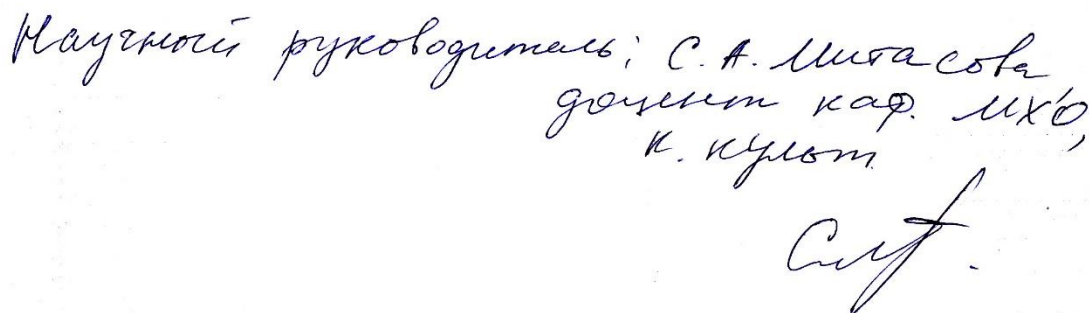 Научный руководитель: С. А. Митасова
доцент каф. МХО,
к. культ.